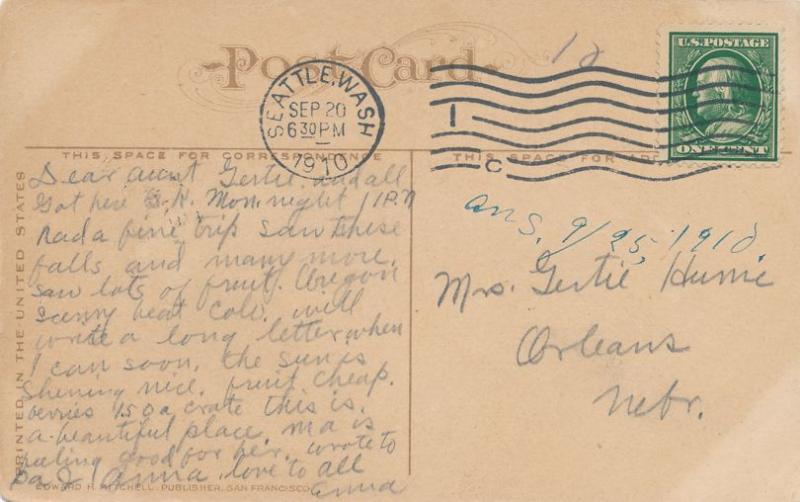 Post Card
12
SEATTLE, WASH
SEP 20
6 30 PM
1910
1
C
U.S. POSTAGE
ONE CENT
THIS SPACE FOR CORRESPONDENCE
THIS SPACE FOR ADD
PRINTED IN THE UNITED STATES
Dear aunt Gertie and all
Got here O.K. Mon. night 11 P.M
Had a fine trip saw these
falls and many more.
saw lots of fruit. Oregon
beat Colo. will
write a long letter when
I can soon. the sun is
shening nice. fruit cheap.
berries 150 a crate this is
a beautiful place. ma is
feeling good for her. wrote to
Pa & Anna. love to all
Anna
ans. 9/25, 1910.
Mrs. Gertie Hume
Orleans
Nebr.
EDWARD H. MITCHELL, PUBLISHER, SAN FRANCISCO